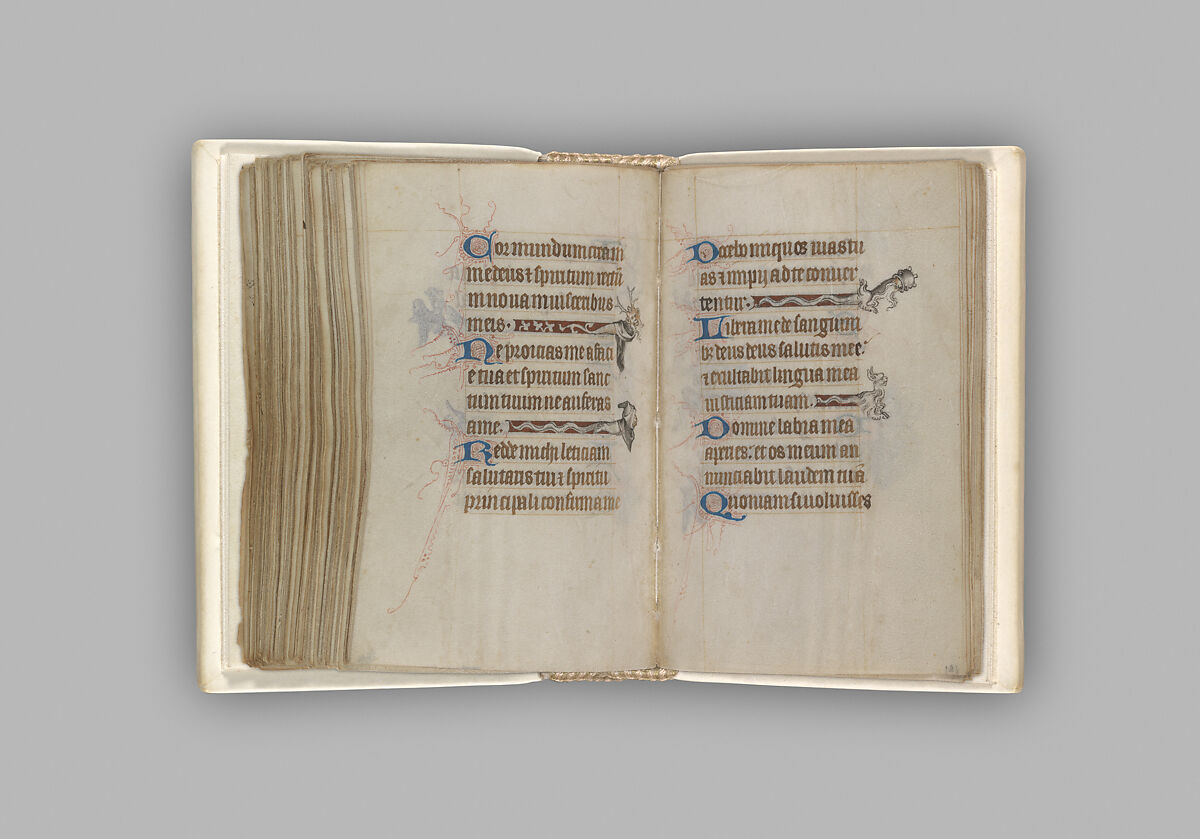 Cor mundum crea in
me deus ⁊ spiritum rectū
in noua in uisceribus
meis.
Ne proicias me a faci
e tua et spiritum sanc
tum tuum ne auferas
a me.
Redde michi leticiam
salutaris tui ⁊ spiritu
principali confirma me
Docebo iniquos uias tu
as ⁊ impij ad te conuer
tentur.
Libera me de sanguini
bꝫ deus deus salutis mee:
⁊ exultabit lingua mea
iusticiam tuam.
Domine labia mea
aperies: et os meum an
nunciabit laudem tuā
Quoniam si uoluisses